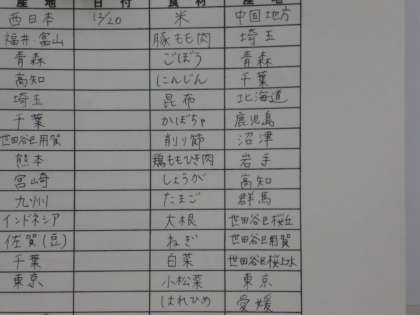 産地 日付 食材 産地
西日本 12/20 米 中国地方
福井 富山 豚もも肉 埼玉
青森 ごぼう 青森
高知 にんじん 千葉
埼玉 昆布 北海道
千葉 かぼちゃ 鹿児島
世田谷区用賀 削り節 沼津
熊本 鶏ももひき肉 岩手
宮崎 しょうが 高知
九州 たまご 群馬
インドネシア 大根 世田谷区桜丘
佐賀(豆) ねぎ 世田谷区用賀
千葉 白菜 世田谷区桜上水
東京 小松菜 東京
はれひめ 愛媛